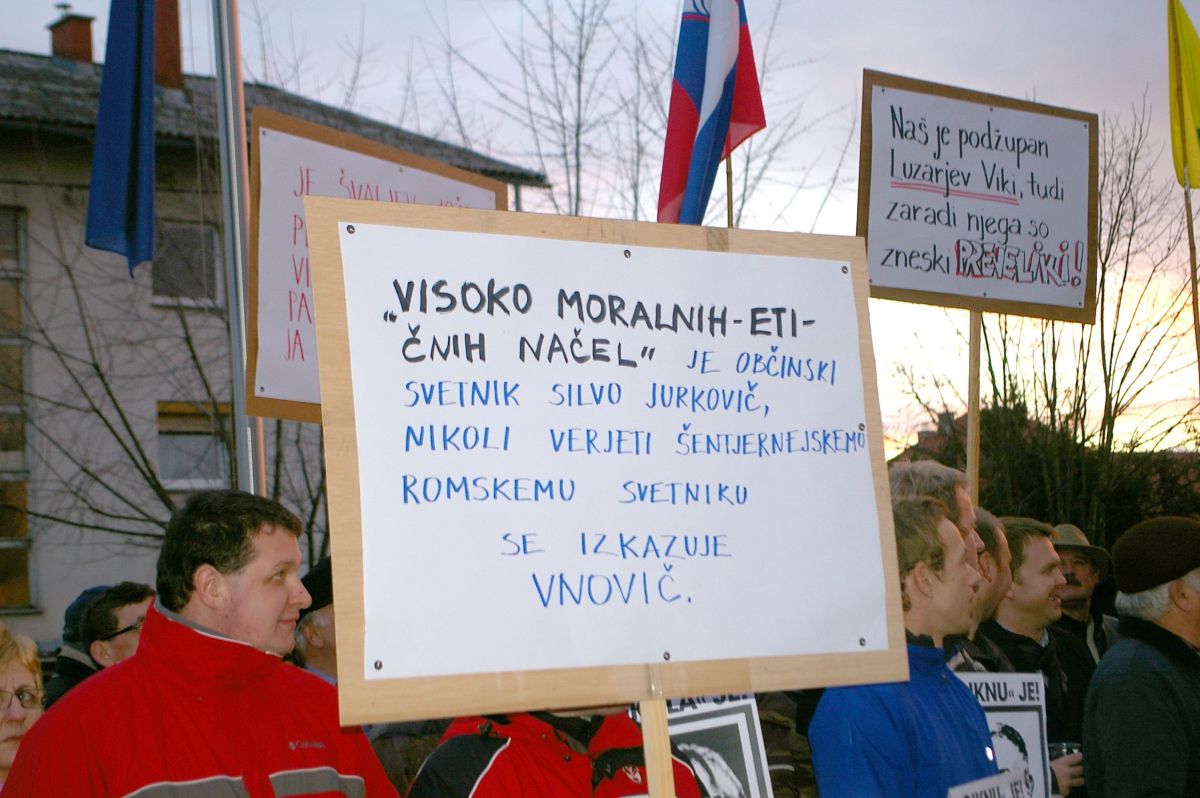 „VISOKO MORALNIH-ETI-
ČNIH NAČEL" JE OBČINSKI
SVETNIK SILVO JURKOVIČ,
NIKOLI VERJETI ŠENTJERNEJSKEMU
ROMSKEMU SVETNIKU
SE IZKAZUJE
VNOVIČ.
Naš je podžupan
Luzarjev Viki, tudi
zaradi njega so
zneski PREVELIKI!
JE ŠVALJEV
JA
Columbia
JE!